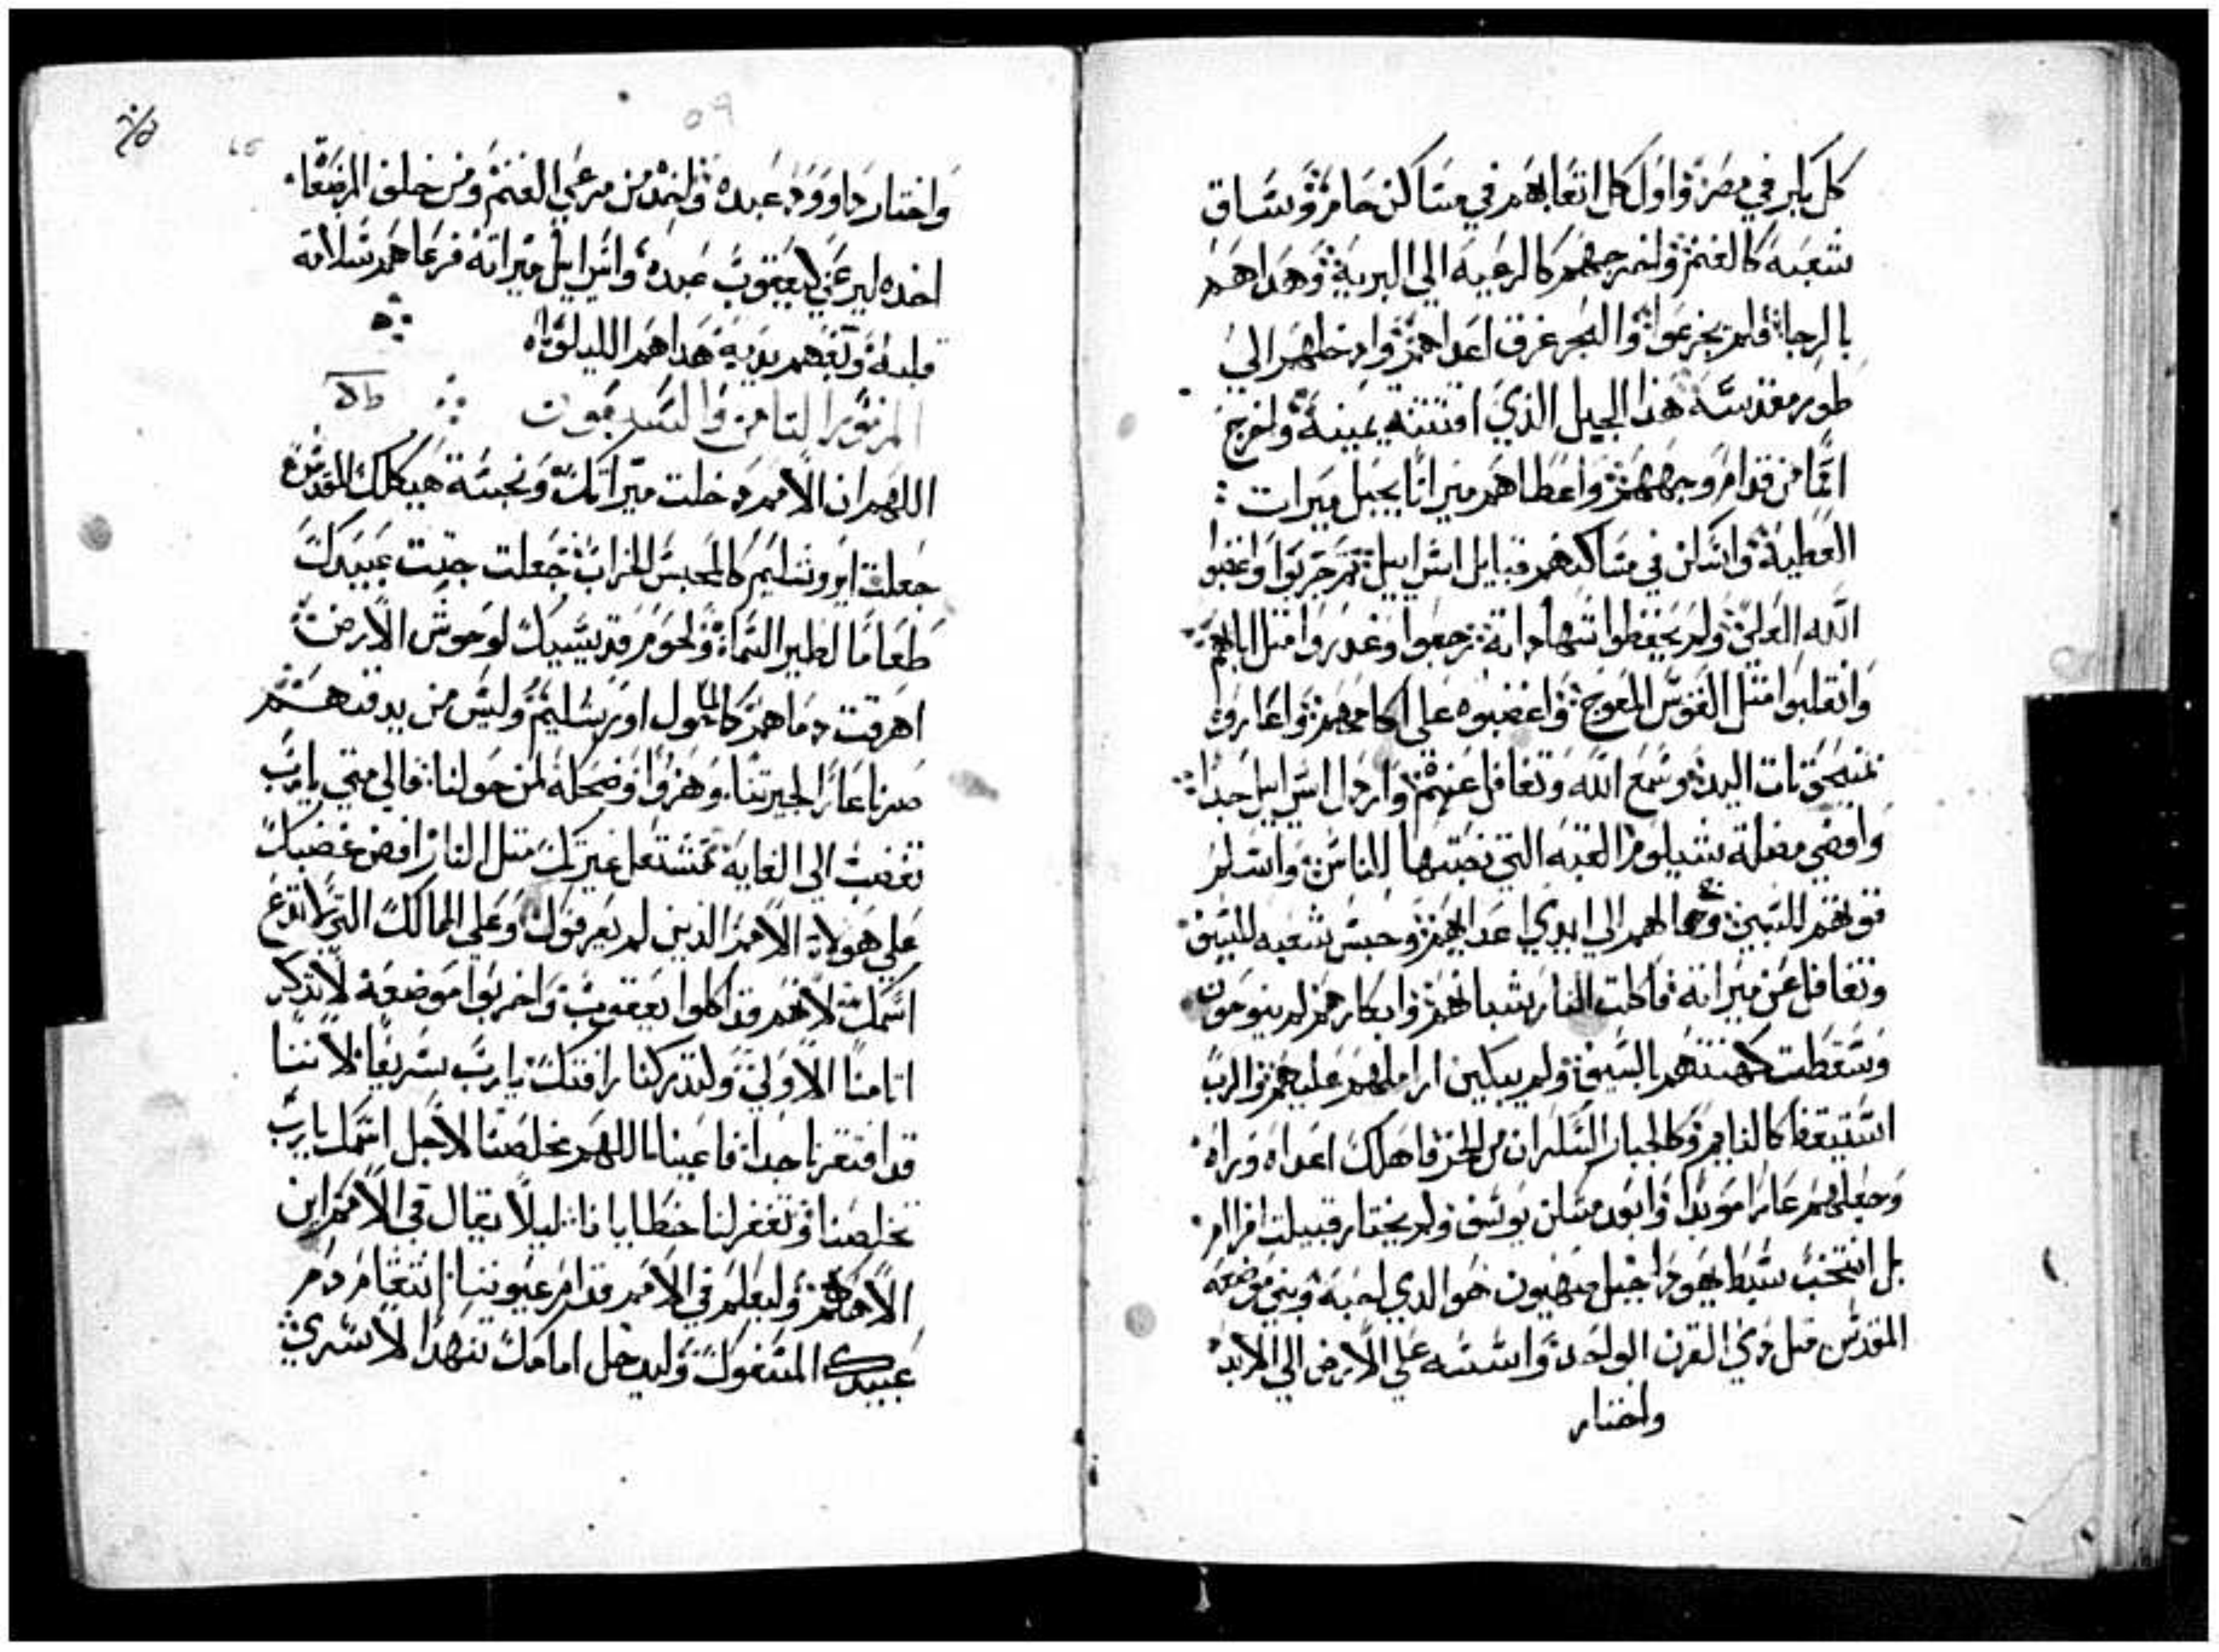 كل بكر في مصر واول كل اتعابهم في مساكن حام وساق
شعبه كالغنم واخرجهم كالرعيه الي البرية وهداهم
بالرجا فلم يجزعوا والبحر غرق اعداهم وادخلهم الي
طور مقدسه هذا الجبل الذي اقتنته يمينه واخرج
امما من قدام وجههم واعطاهم ميراثا بحبل ميرات
العطية واسكن في مساكنهم قبايل اسراييل ثم جربوا واغضبوا
الله العلي ولم يحفظوا شهاداته رجعوا وغدروا مثل ابايهم
وانقلبوا مثل القوس المعوج واغضبوه علي اكامهم واغاروه
بمنحوتات اليد سمع الله وتغافل عنهم وارذل اسراييل جدا
واقصي مضلة شيلوم القبه التي نصبها للناس واسلم
قوتهم للسبي وجمالهم الي ايدي اعدايهم وحبس شعبه للسيف
وتغافل عن ميراته فاكلت النار شبانهم وابكارهم لم ينوحون
وسقطت كهنتهم بالسيف ولم يبكين اراملهم عليهم والرب
استيقظ كالنايم وكالجبار السكران من الخمر فاهلك اعداه وراه
وجعلهم عارا موبدا وابعد مسكن يوسف ولم يختار قبيلت افرام
بل انتخب سبط يهودا جبل صهيون هو الدي احبه وبني موضعه
المقدس مثل دي القرن الواحد واسسه علي الارض الي الابد
واختار
٥٩
65
واختار داوود عبده واخده من مرعي الغنم ومن خلف المرضعا
اخده ليرعي ليعقوب عبده واسراييل ميراته فرعاهم بسلامة
قلبه وبفهم يديه هداهم الليلويا
المزمور التامن والسبعون
اللهم ان الامم دخلت ميراتك ونجست هيكلك المقدس
جعلت ايروشليم كالمحبس الخراب جعلت جتت عبيدك
طعاما لطير السما ولحوم قديسيك لوحوش الارض
اهرقت دماهم كالما حول اورشليم وليس من يدفنهم
صرنا عارا لجيرتنا وهزوا وضحكة لمن حولنا فالي متي يارب
تغضب الي الغاية تشتعل غيرتك متل النار افض غضبك
علي هولاء الامم الدين لم يعرفوك وعلي الممالك التي لا تدع
اسمك لانهم قد اكلوا يعقوب واخربوا موضعه لا تذكر
اتامنا الاولي ولتدركنا رافتك يارب سريعا لاننا
قد افتقرنا جدا فاعينانا اللهم مخلصنا لاجل اسمك يارب
تخلصنا وتغفر لنا خطايانا ليلا يقال في الامم اين
الاههم وليعلم في الامم قدام عيوننا انتقام دم
عبيدك المسفوك وليدخل امامك تنهد الاسري